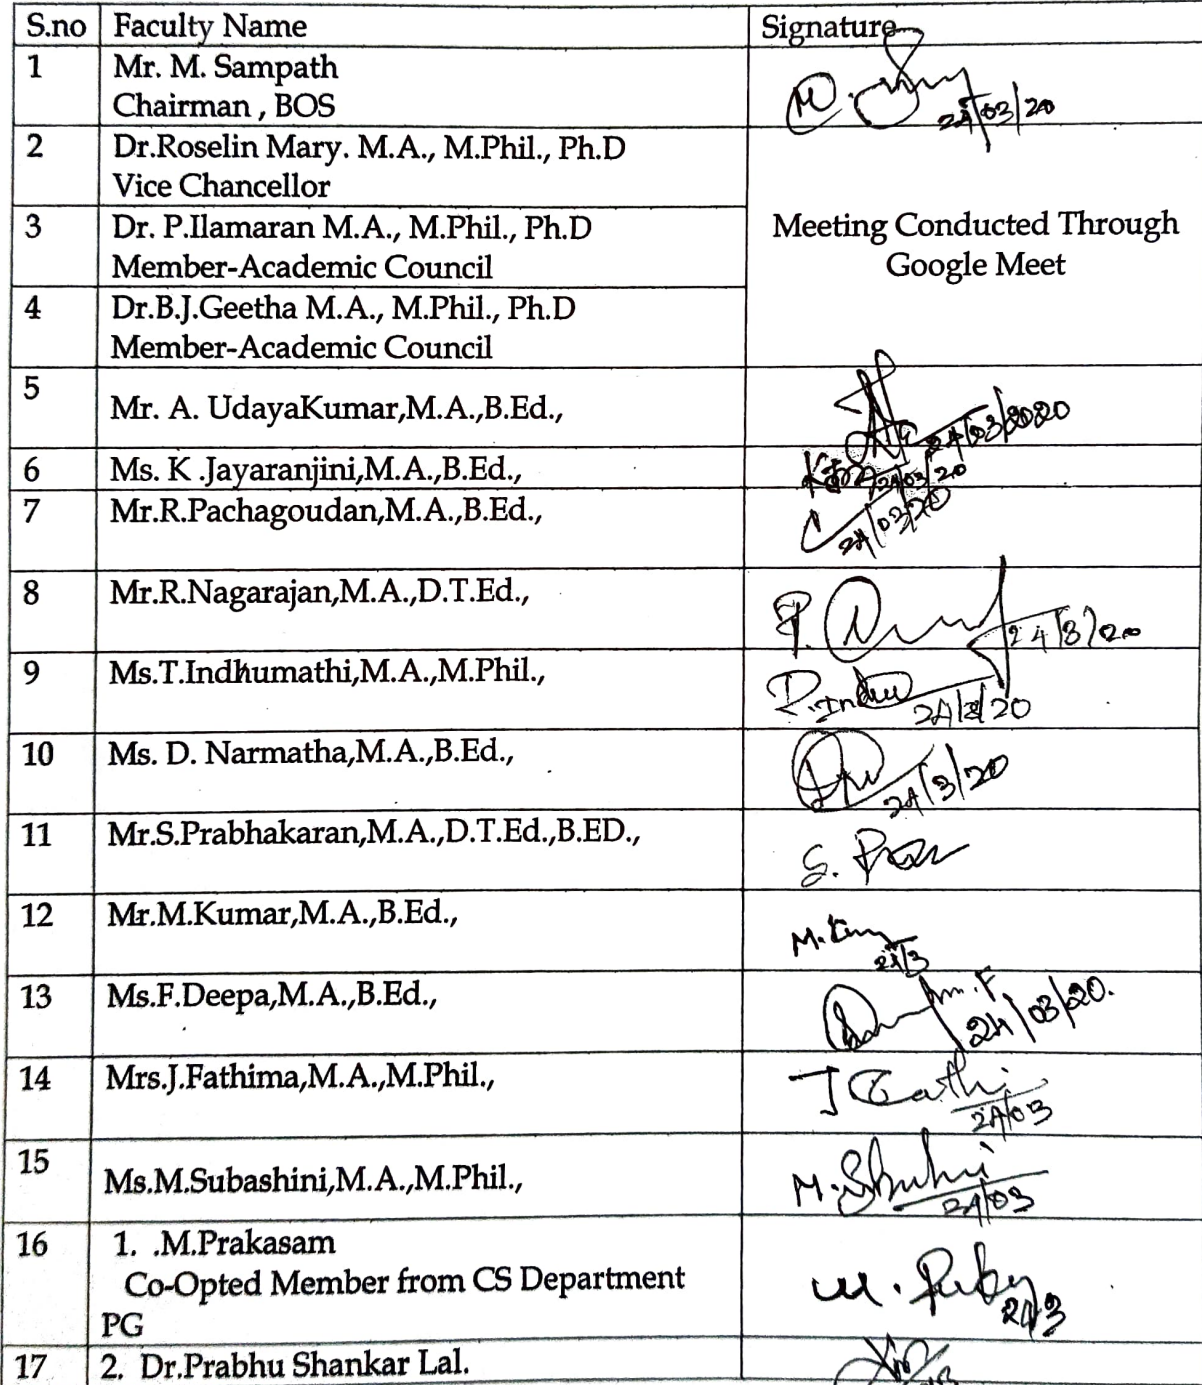 S.no Faculty Name Signature
1 Mr. M. Sampath
Chairman , BOS
24/03/20
2 Dr.Roselin Mary. M.A., M.Phil., Ph.D
Vice Chancellor
3 Dr. P.Ilamaran M.A., M.Phil., Ph.D
Member-Academic Council
Meeting Conducted Through
Google Meet
4 Dr.B.J.Geetha M.A., M.Phil., Ph.D
Member-Academic Council
5 Mr. A. UdayaKumar,M.A.,B.Ed.,
24/03/2020
6 Ms. K .Jayaranjini,M.A.,B.Ed.,
24/03/20
7 Mr.R.Pachagoudan,M.A.,B.Ed.,
24/03/20
8 Mr.R.Nagarajan,M.A.,D.T.Ed.,
24/3/20
9 Ms.T.Indhumathi,M.A.,M.Phil.,
24/3/20
10 Ms. D. Narmatha,M.A.,B.Ed.,
24/3/20
11 Mr.S.Prabhakaran,M.A.,D.T.Ed.,B.ED.,
12 Mr.M.Kumar,M.A.,B.Ed.,
24/3
13 Ms.F.Deepa,M.A.,B.Ed.,
24/03/20.
14 Mrs.J.Fathima,M.A.,M.Phil.,
24/03
15 Ms.M.Subashini,M.A.,M.Phil.,
24/03
16 1. .M.Prakasam
Co-Opted Member from CS Department
PG
24/3
17 2. Dr.Prabhu Shankar Lal.